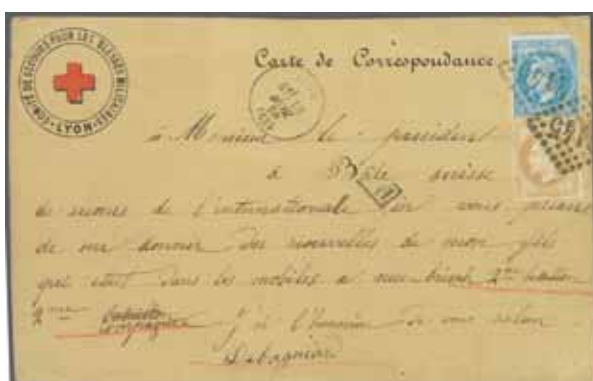 COMITÉ DE SECOURS POUR LES BLESSÉS MILITAIRES
LYON
Carte de Correspondance
à Monsieur le président
à Bâle suisse
de secours de l'internationale en vous priant
de me donner des nouvelles de mon fils
qui était dans les mobiles a neu-brisach 2me
2me compagnie j'ai l'honneur de vous